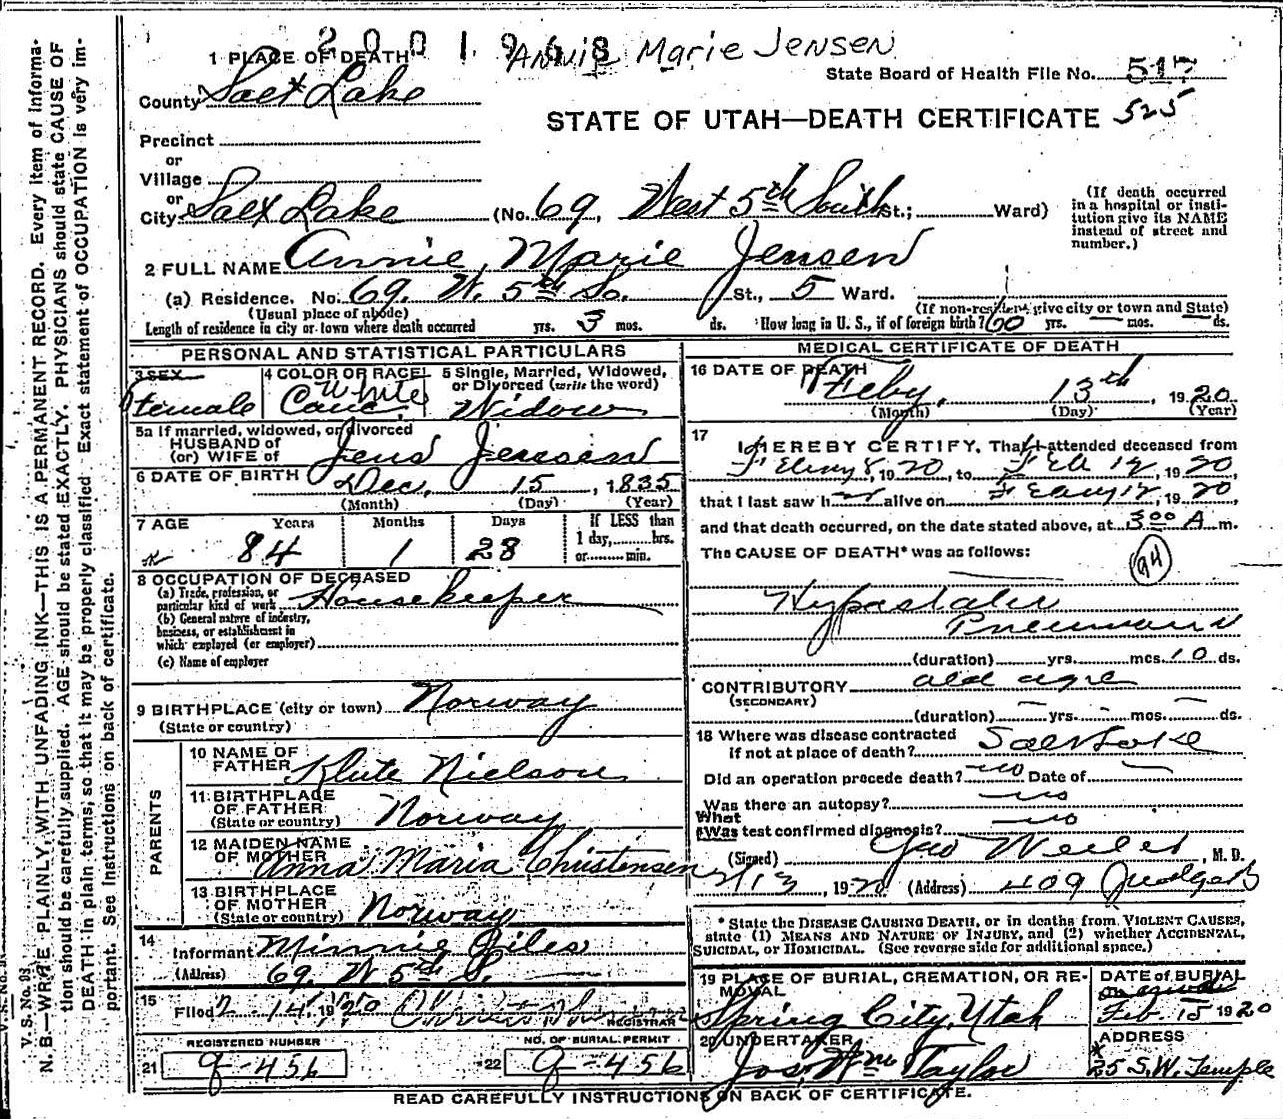 2001968 Annie Marie Jensen
1 PLACE OF DEATH
State Board of Health File No. 517
County Salt Lake
STATE OF UTAH—DEATH CERTIFICATE 525
Precinct
or
Village
or
City Salt Lake (No. 69, West 5th South St.; Ward)
(If death occurred in a hospital or institution give its NAME instead of street and number.)
2 FULL NAME Annie Marie Jensen
(a) Residence. No. 69. W. 5th So. St., 5 Ward.
(Usual place of abode) (If non-resident give city or town and State)
Length of residence in city or town where death occurred yrs. 3 mos. ds. How long in U. S., if of foreign birth? 60 yrs. — mos. — ds.
PERSONAL AND STATISTICAL PARTICULARS
3 SEX Female
4 COLOR OR RACE White Cauc.
5 Single, Married, Widowed, or Divorced (write the word) Widow
5a If married, widowed, or divorced
HUSBAND of
(or) WIFE of Jens Jensen
6 DATE OF BIRTH Dec. 15, 1835
(Month) (Day) (Year)
7 AGE Years Months Days If LESS than
84 1 28 1 day, hrs.
or min.
8 OCCUPATION OF DECEASED
(a) Trade, profession, or
particular kind of work Housekeeper
(b) General nature of industry,
business, or establishment in
which employed (or employer)
(c) Name of employer
9 BIRTHPLACE (city or town) Norway
(State or country)
PARENTS
10 NAME OF
FATHER Klute Nielson
11 BIRTHPLACE
OF FATHER
(State or country) Norway
12 MAIDEN NAME
OF MOTHER Anna Maria Christensen
13 BIRTHPLACE
OF MOTHER
(State or country) Norway
14
Informant Minnie Giles
(Address) 69. W 5th S.
15
Filed 2. 14, 1920
REGISTRAR
REGISTERED NUMBER
21 9-456
NO. OF BURIAL PERMIT
22 9-456
MEDICAL CERTIFICATE OF DEATH
16 DATE OF DEATH
Feby, 13th, 1920
(Month) (Day) (Year)
17
I HEREBY CERTIFY, That I attended deceased from
Febry 8, 1920, to Feb 12, 1920
that I last saw her alive on Febry 12, 1920
and that death occurred, on the date stated above, at 3:00 A m.
The CAUSE OF DEATH* was as follows:
94
Hypostatic
Pneumonia
(duration) yrs. mos. 10 ds.
CONTRIBUTORY old age
(SECONDARY)
(duration) — yrs. — mos. — ds.
18 Where was disease contracted
if not at place of death? Salt Lake
Did an operation precede death? no Date of —
Was there an autopsy? no
What
Was test confirmed diagnosis? no
(Signed) Geo Weiler, M. D.
2/13, 1920 (Address) 409 Judge B
* State the DISEASE CAUSING DEATH, or in deaths from VIOLENT CAUSES,
state (1) MEANS AND NATURE OF INJURY, and (2) whether ACCIDENTAL,
SUICIDAL, or HOMICIDAL. (See reverse side for additional space.)
19 PLACE OF BURIAL, CREMATION, OR RE-
MOVAL
Spring City, Utah
DATE of BURIAL
Feb. 15 1920
20 UNDERTAKER
Jos. Wm Taylor
ADDRESS
25 S. W. Temple
READ CAREFULLY INSTRUCTIONS ON BACK OF CERTIFICATE.
V. S. No. 98
N. B.—WRITE PLAINLY, WITH UNFADING INK—THIS IS A PERMANENT RECORD. Every item of informa-
tion should be carefully supplied. AGE should be stated EXACTLY. PHYSICIANS should state CAUSE OF
DEATH in plain terms, so that it may be properly classified. Exact statement of OCCUPATION is very im-
portant. See instructions on back of certificate.